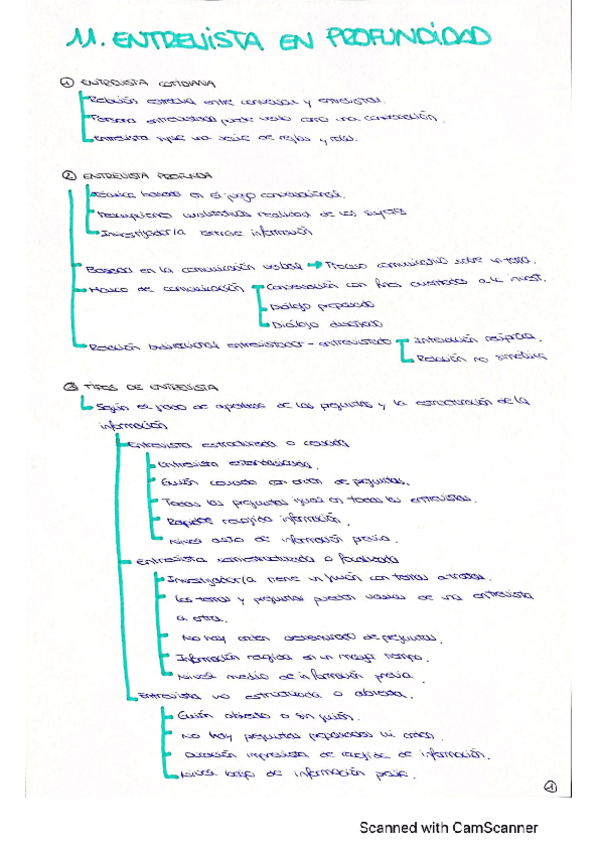 11. ENTREVISTA EN PROFUNDIDAD
1 ENTREVISTA COTIDIANA
Relación estrecha entre conversar y entrevistar.
Persona entrevistada puede verlo como una conversación.
Entrevista sigue una serie de reglas y roles.
2 ENTREVISTA PROFUNDA
Técnica basada en el juego conversacional.
realidad de los sujetos
Investigador/a extrae información
Basada en la comunicación verbal → Proceso comunicativo sobre un tema.
Marco de comunicación Conversación con fines orientados a la invest.
Diálogo preparado
Diálogo diseñado
Relación bidireccional entrevistador - entrevistado Interacción recíproca.
Relación no simétrica
3 TIPOS DE ENTREVISTA
Según el grado de apertura de las preguntas y la estructuración de la
información
Entrevista estructurada o cerrada
Entrevista estandarizada.
Guión cerrado con orden de preguntas.
Todas las preguntas igual en todas las entrevistas.
Rápida recogida información.
Nivel alto de información previa.
Entrevista semiestructurada o focalizada
Investigador/a tiene un guión con temas a tratar.
Los temas y preguntas pueden variar de una entrevista
a otra.
No hay orden determinado de preguntas.
Información recogida en un mayor tiempo.
Nivel medio de información previa.
Entrevista no estructurada o abierta.
Guión abierto o sin guión.
No hay preguntas preparadas ni orden.
Duración imprevista de recogida de información.
Nivel bajo de información previa.
1
Scanned with CamScanner